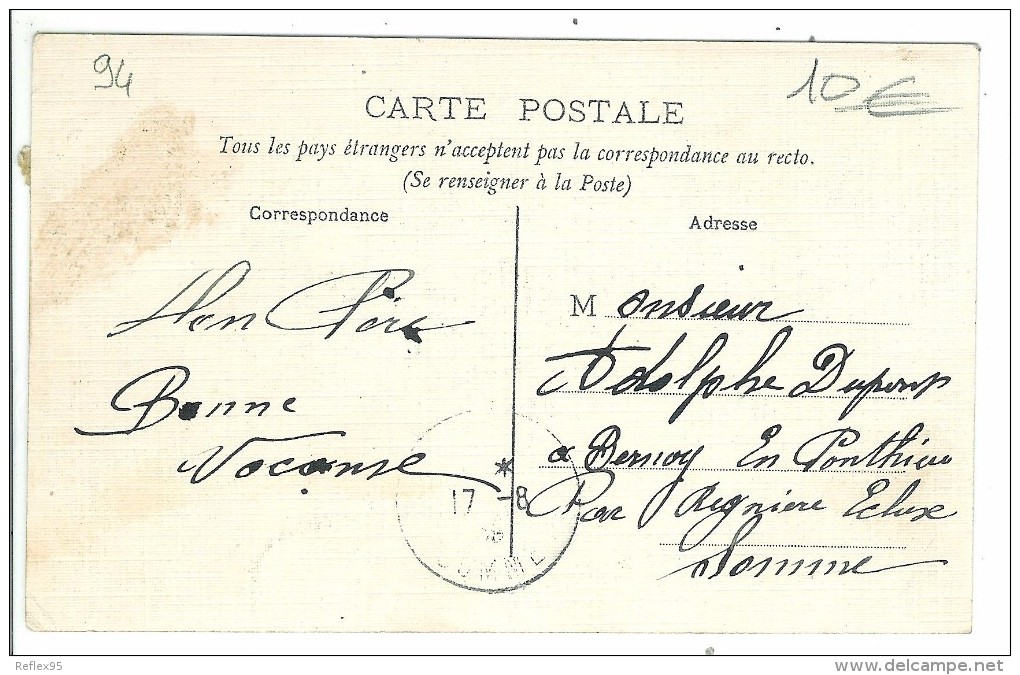 94
10€
CARTE POSTALE
Tous les pays étrangers n'acceptent pas la correspondance au recto.
(Se renseigner à la Poste)
Correspondance
Adresse
Mon Père
Bonne
Vacanse
Monsieur
Adolphe Dupont
a Bernoy En Ponthieu
Par Regniere Ecluse
Somme
17 -8
SOMME
Reflex95
www.delcampe.net